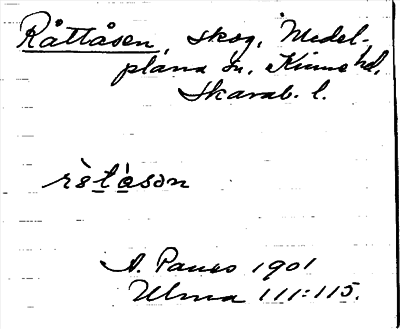 Råttåsen, skog, Medel-
plana sn, Kinne hd,
Skarab. l.
rètåsən
A. Paues 1901
Ulma 111:115.